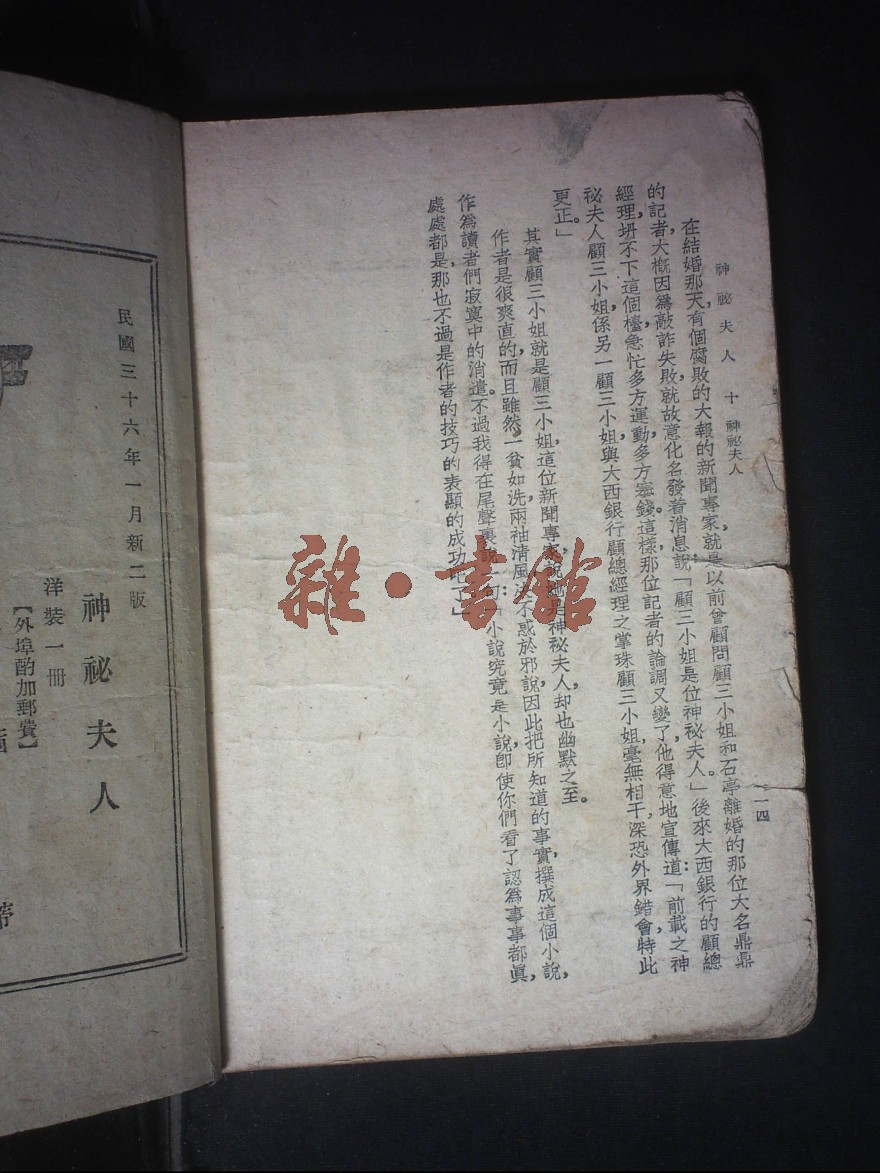 神祕夫人 十 神祕夫人
一四
在結婚那天,有個腐敗的大報的新聞專家,就是以前曾顧問顧三小姐和石亭離婚的那位大名鼎鼎
的記者,大槪因爲敲詐失敗,就故意化名發着消息說:「顧三小姐是位神祕夫人。」後來大西銀行的顧總
經理,坍不下這個檯,急忙多方運動,多方塞錢。這樣,那位記者的論調又變了,他得意地宣傳道:「前載之神
祕夫人顧三小姐,係另一顧三小姐,與大西銀行顧總經理之掌珠顧三小姐,毫無相干,深恐外界錯會,特此
更正。」
其實顧三小姐就是顧三小姐,這位新聞專家說她是神祕夫人,却也幽默之至。
作者是很爽直的,而且雖然一貧如洗,兩袖清風,決不惑於邪說,因此把所知道的事實,撰成這個小說,
作爲讀者們寂寞中的消遣。不過我得在尾聲裏說一句:「小說究竟是小說,卽使你們看了認爲事事都眞,
處處都是,那也不過是作者的技巧的表顯的成功吧了」
民國三十六年一月新二版
神祕夫人
洋裝一冊
【外埠酌加郵費】
雜·書館